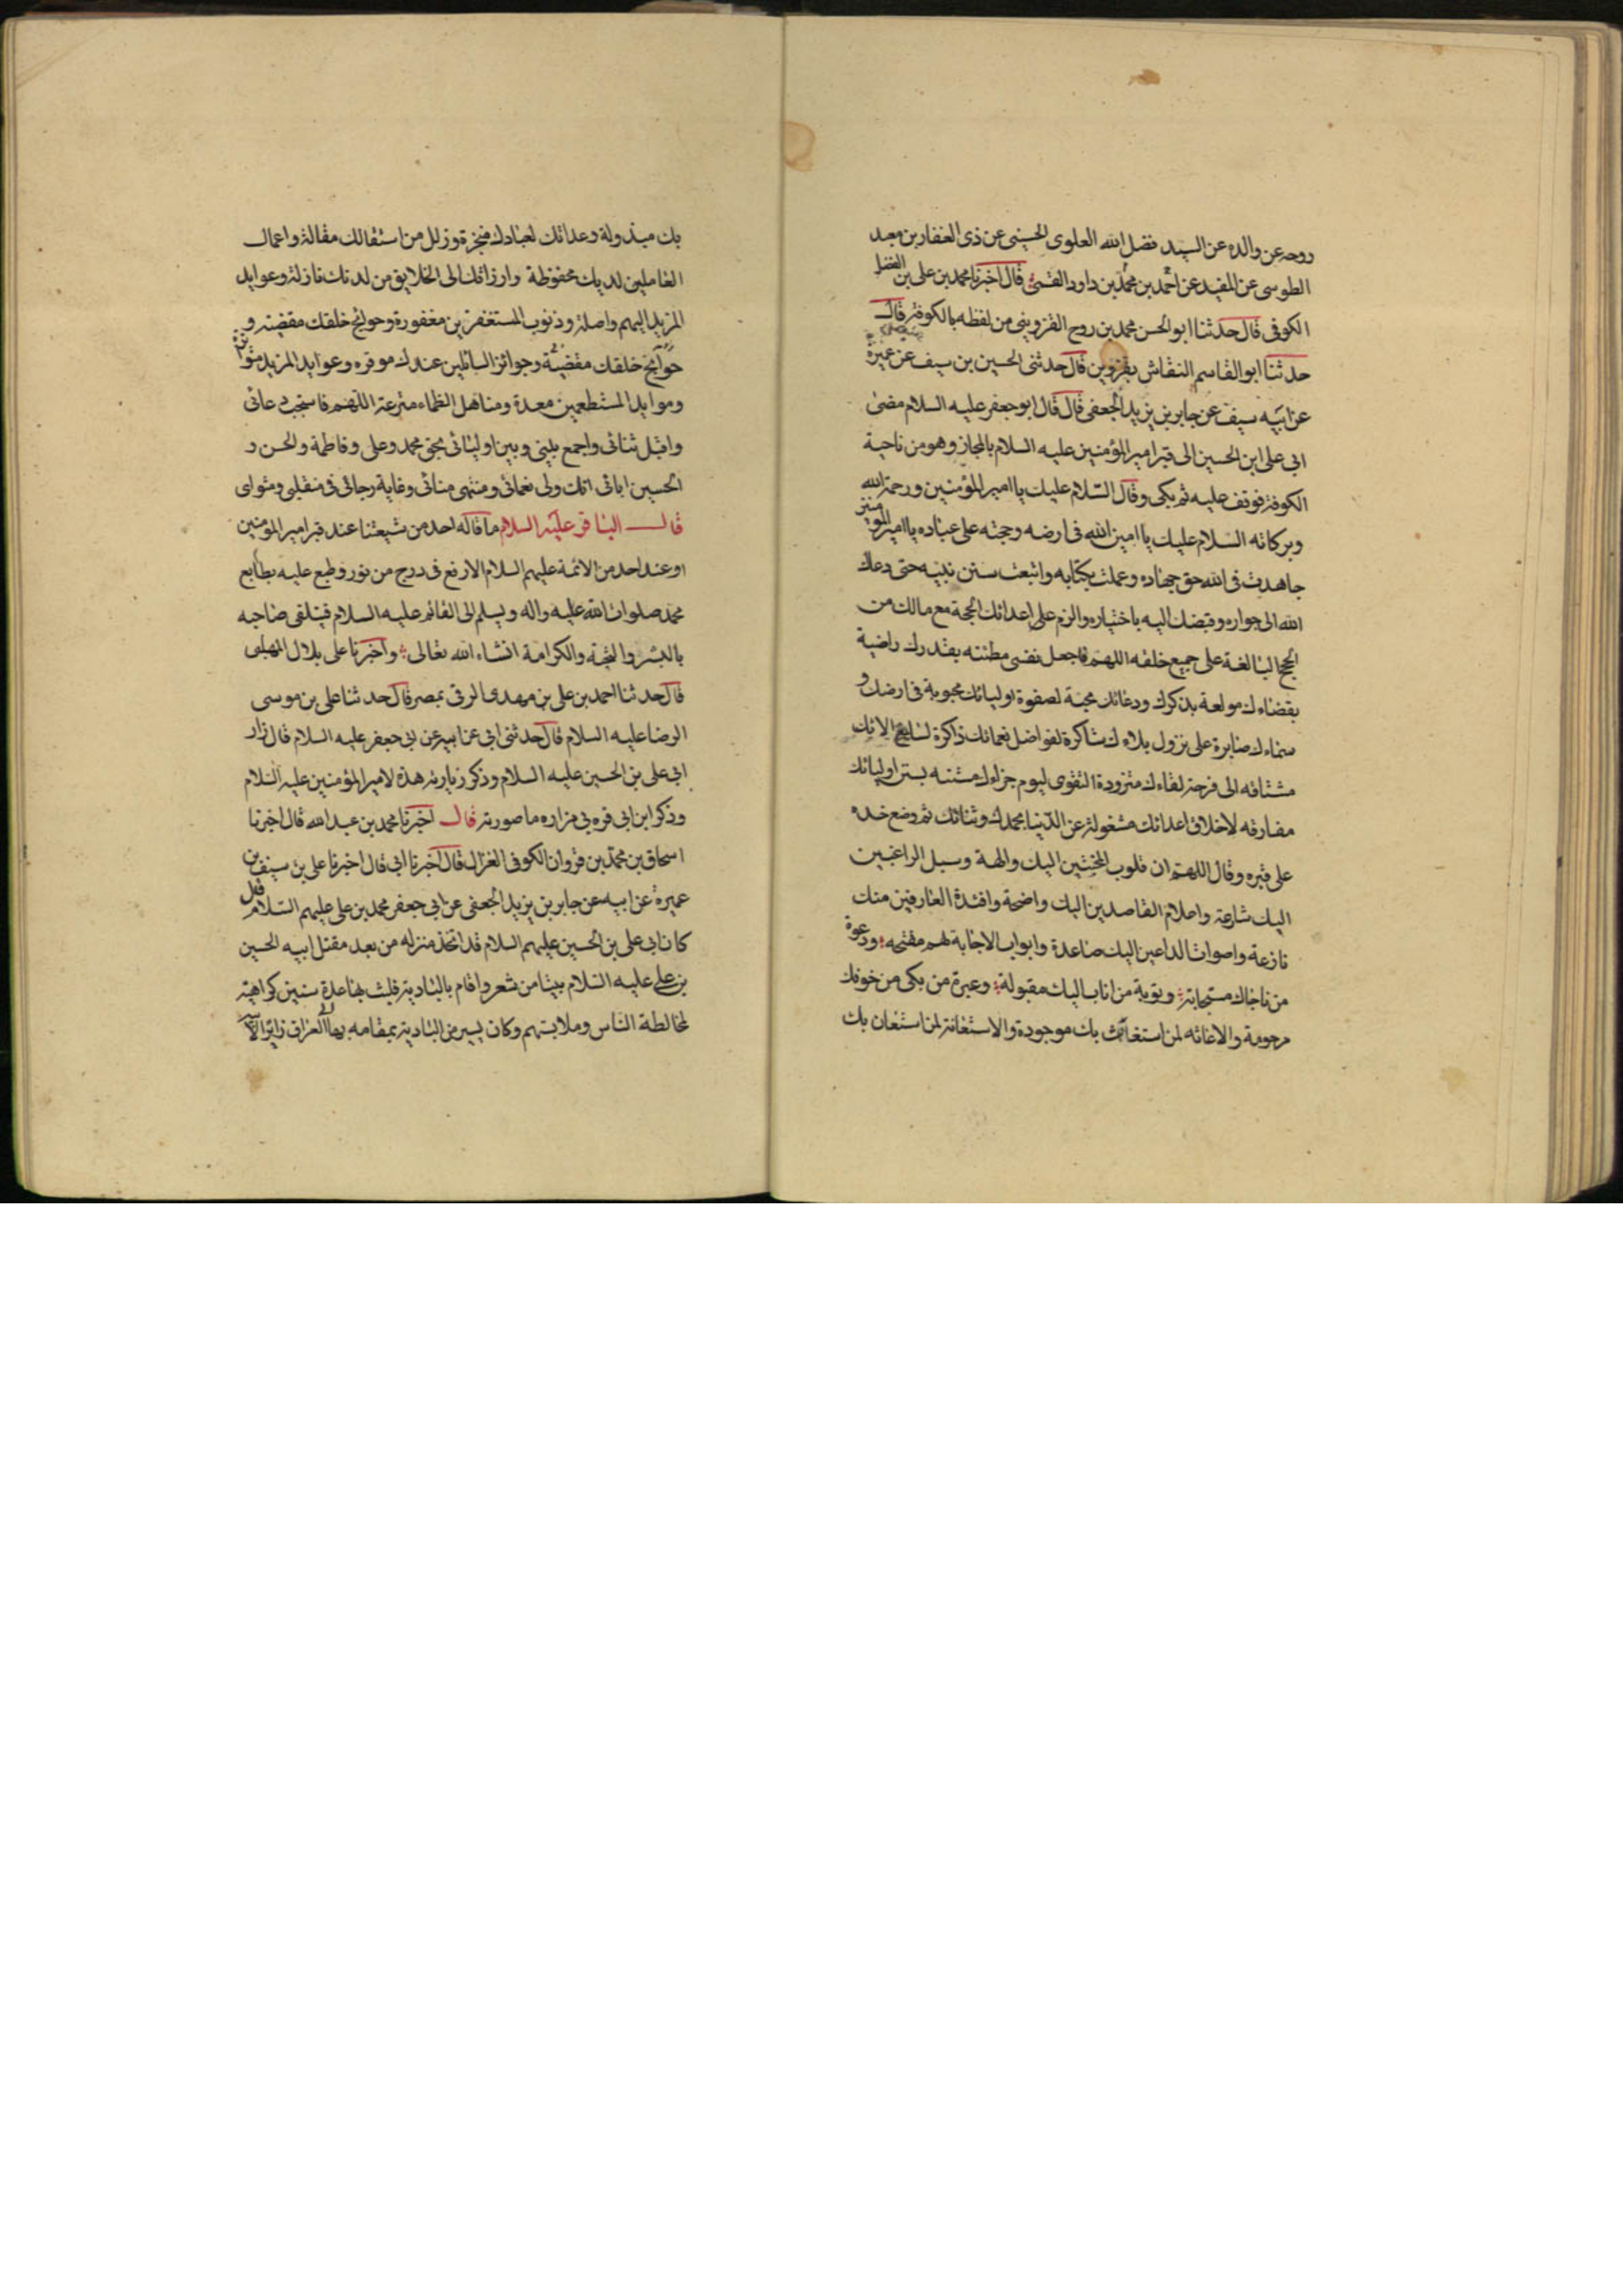 روحه عن والده عن السيد فضل الله العلوي الحسيني عن ذي الفقار بن معبد
الطوسي عن المفيد عن احمد بن محمد بن داود القمي قال اخبرنا محمد بن علي بن الفضل
الكوفي قال حدثنا ابو الحسن محمد بن روح القزويني من لفظه بالكوفة قال
حدثنا ابو القاسم النقاش بقزوين قال حدثني الحسين بن سيف عن عميرة
عن ابيه سيف عن جابر بن يزيد الجعفي قال قال ابو جعفر عليه السلام مضى
ابي علي ابن الحسين الى قبر امير المؤمنين عليه السلام بالمجاز وهو من ناحية
الكوفة فوقف عليه ثم بكى وقال السلام عليك يا امير المؤمنين ورحمة الله
وبركاته السلام عليك يا امين الله في ارضه وحجته على عباده يا امير المؤمنين
جاهدت في الله حق جهاده وعملت بكتابه واتبعت سنن نبيه حتى دعاك
الله الى جواره وقبضك اليه باختياره والزم على اعدائك الحجة مع مالك من
الحجج البالغة على جميع خلقه اللهم فاجعل نفسي مطئنه بقدرك راضية
بقضاءك مولعة بذكرك ودعائك محبة لصفوة اوليائك محبوبة في ارضك و
سماءك صابرة على نزول بلاءك شاكرة لفواضل نعمائك ذاكرة لسابغ الائك
مشتاقه الى فرحة لقاءك متزودة التقوى ليوم جزاءك مستنه بسنن اوليائك
مفارقه لاخلاق اعدائك مشغولة عن الدنيا بحمدك وثنائك ثم وضع خده
على قبره وقال اللهم ان قلوب المخبتين اليك والهة وسبل الراغبين
اليك شارعة واعلام القاصدين اليك واضحة وافئدة العارفين منك
نازعة واصوات الداعين اليك صاعدة وابواب الاجابة لهم مفتحه ودعوة
من ناجاك مستجابة وتوبة من اناب اليك مقبولة وعبرة من بكى من خوفك
مرحومة والاغاثه لمن استغاث بك موجودة والاستغانة لمن استغان بك
بك مبذولة وعداتك لعبادك منجزة وزلل من استقالك مقالة واعمال
العاملين لديك محفوظة وارزاقك الى الخلايق من لدنك نازلة وعوايد
المزيد اليهم واصلة وذنوب المستغفرين مغفورة وحوائج خلقك مقضية و
حوائج خلقك مقضية وجوائز السائلين عندك موفره وعوايد المزيد متواترة
وموايد المستطعمين معدة ومناهل الظماء مترعة اللهم فاستجب دعائي
واقبل ثنائي واجمع بيني وبين اوليائي بحق محمد وعلي وفاطمة والحسن و
الحسين اباتي انك ولي نعمائي ومنتهى منائي وغاية رجائي في منقلبي ومثواي
قال الباقر عليه السلام ما قاله احد من شيعتنا عند قبر امير المؤمنين
او عند احد من الائمة عليهم السلام الا رفع في درج من نور وطبع عليه بطابع
محمد صلوات الله عليه واله ويسلم الى القائم عليه السلام فيتلقى صاحبه
بالبشر والتحية والكرامة انشاء الله تعالى واخبرنا علي بلال المهلبي
قال حدثنا احمد بن علي بن مهدي الرقي بمصر قال حدثنا علي بن موسى
الرضا عليه السلام قال حدثني ابي عن ابيه عن ابي جعفر عليه السلام قال زار
ابي علي بن الحسين عليه السلام وذكر زيارته هذه لامير المؤمنين عليه السلام
وذكر ابن ابي قره في مزاره ما صورته قال اخبرنا محمد بن عبد الله قال اخبرنا
اسحاق بن محمد بن مروان الكوفي الغزال قال اخبرنا ابي قال اخبرنا علي بن سيف بن
عميرة عن ابيه عن جابر بن يزيد الجعفي عن ابي جعفر محمد بن علي عليهم السلام قال
كان ابي علي بن الحسين عليهم السلام قد اتخذ منزله من بعد مقتل ابيه الحسين
بن علي عليه السلام بيتا من شعر واقام بالبادية فلبث بها عدة سنين كراهية
لمخالطة الناس وملابستهم وكان يسير من البادية بمقامه بها الى العراق زائرا